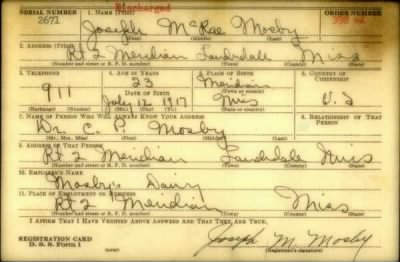 Discharged
SERIAL NUMBER 1. NAME (Print) ORDER NUMBER
2671 Joseph McRae Mosby
(First) (Middle) (Last)
2. ADDRESS (Print)
Rt 2 Meridian Lauderdale Miss
(Number and street or R. F. D. number) (Town) (County) (State)
3. TELEPHONE 4. AGE IN YEARS 5. PLACE OF BIRTH 6. COUNTRY OF CITIZENSHIP
911 23 Meridian U.S
DATE OF BIRTH (Town or county)
July 12 1917 Miss
(Exchange) (Number) (Mo.) (Day) (Yr.) (State or country)
7. NAME OF PERSON WHO WILL ALWAYS KNOW YOUR ADDRESS 8. RELATIONSHIP OF THAT PERSON
Dr. C. P. Mosby
(Mr., Mrs., Miss) (First) (Middle) (Last)
9. ADDRESS OF THAT PERSON
Rt 2 Meridian Lauderdale Miss
(Number and street or R. F. D. number) (Town) (County) (State)
10. EMPLOYER'S NAME
Mosby's Dairy
11. PLACE OF EMPLOYMENT OR BUSINESS
Rt 2 Meridian Miss
(Number and street or R. F. D. number) (Town) (County) (State)
I AFFIRM THAT I HAVE VERIFIED ABOVE ANSWERS AND THAT THEY ARE TRUE.
REGISTRATION CARD
D. S. S. Form 1
Joseph M. Mosby
(Registrant's signature)